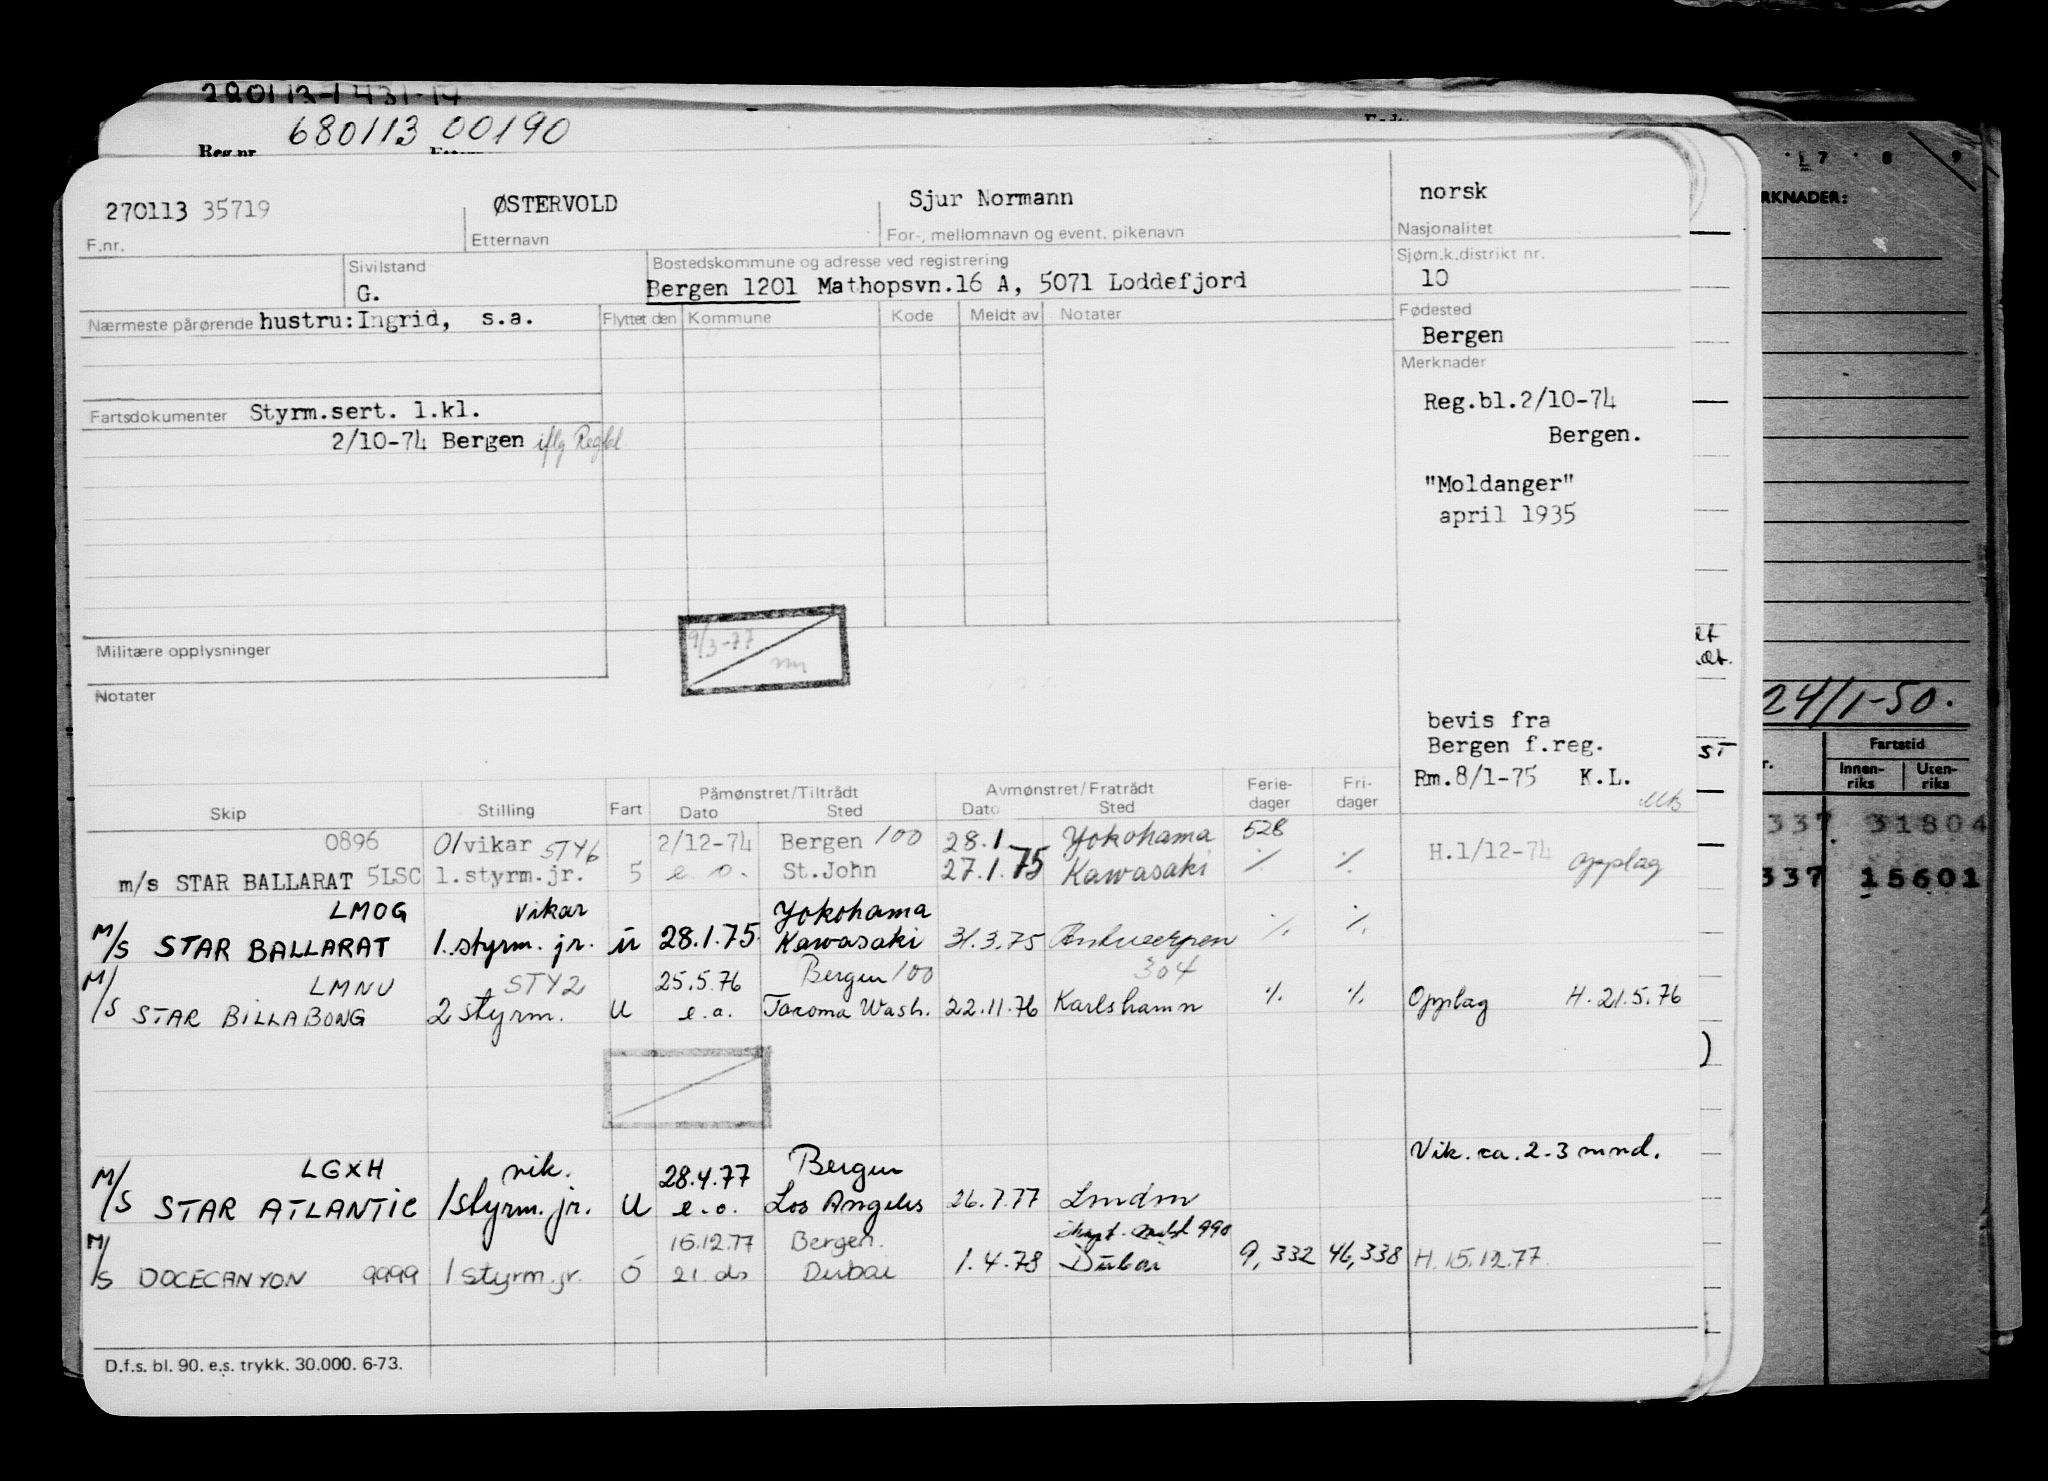 280113-1431-14
Reg.nr. 680113 00190
270113 35719 ØSTERVOLD Sjur Normann norsk
F.nr. Etternavn For-, mellomnavn og event. pikenavn Nasjonalitet
Sivilstand Bostedskommune og adresse ved registrering Sjøm.k.distrikt nr.
G. Bergen 1201 Mathopsvn.16 A, 5071 Loddefjord 10
Nærmeste pårørende hustru:Ingrid, s.a. Flyttet den Kommune Kode Meldt av Notater Fødested
Bergen
Merknader
Fartsdokumenter Styrm.sert. 1.kl. Reg.bl.2/10-74
2/10-74 Bergen iflg Regbl Bergen.
"Moldanger"
april 1935
9/3-77
Militære opplysninger
Notater
bevis fra
Bergen f.reg.
Rm.8/1-75 K.L.
Skip Stilling Fart Påmønstret/Tiltrådt Dato Sted Avmønstret/Fratrådt Dato Sted Ferie-dager Fri-dager
0896 O/vikar STY6 2/12-74 Bergen 100 28.1 Yokohama 528
m/s STAR BALLARAT 5LSC 1.styrm.jr. 5 e.o. St.John 27.1.75 Kawasaki % % H.1/12-74 Opplag
LMOG vikar Yokohama
M/S STAR BALLARAT 1.styrm. jr. ü 28.1.75. Kawasaki 31.3.75 Antwerpen % %
LMNU STY2 25.5.76 Bergen 100 304
M/S STAR BILLABONG 2 styrm. U e.a. Tacoma Wash. 22.11.76 Karlshamn % % Opplag H. 21.5.76
LGXH vik. 28.4.77 Bergen Vik. ca. 2-3 mnd.
M/S STAR ATLANTIC 1styrm. jr. U e.o. Los Angeles 26.7.77 London
16.12.77 Bergen. 990
M/S DOCECANYON 9999 1 styrm.jr. Ö 21. ds Dubai 1.4.78 Dubai 9,332 46,338 H.15.12.77
D.f.s. bl. 90. e.s. trykk. 30.000. 6-73.
17 8 9
RKNADER:
24/1-50.
Fartstid
Innen-riks Uten-riks
337 31804
337 15601